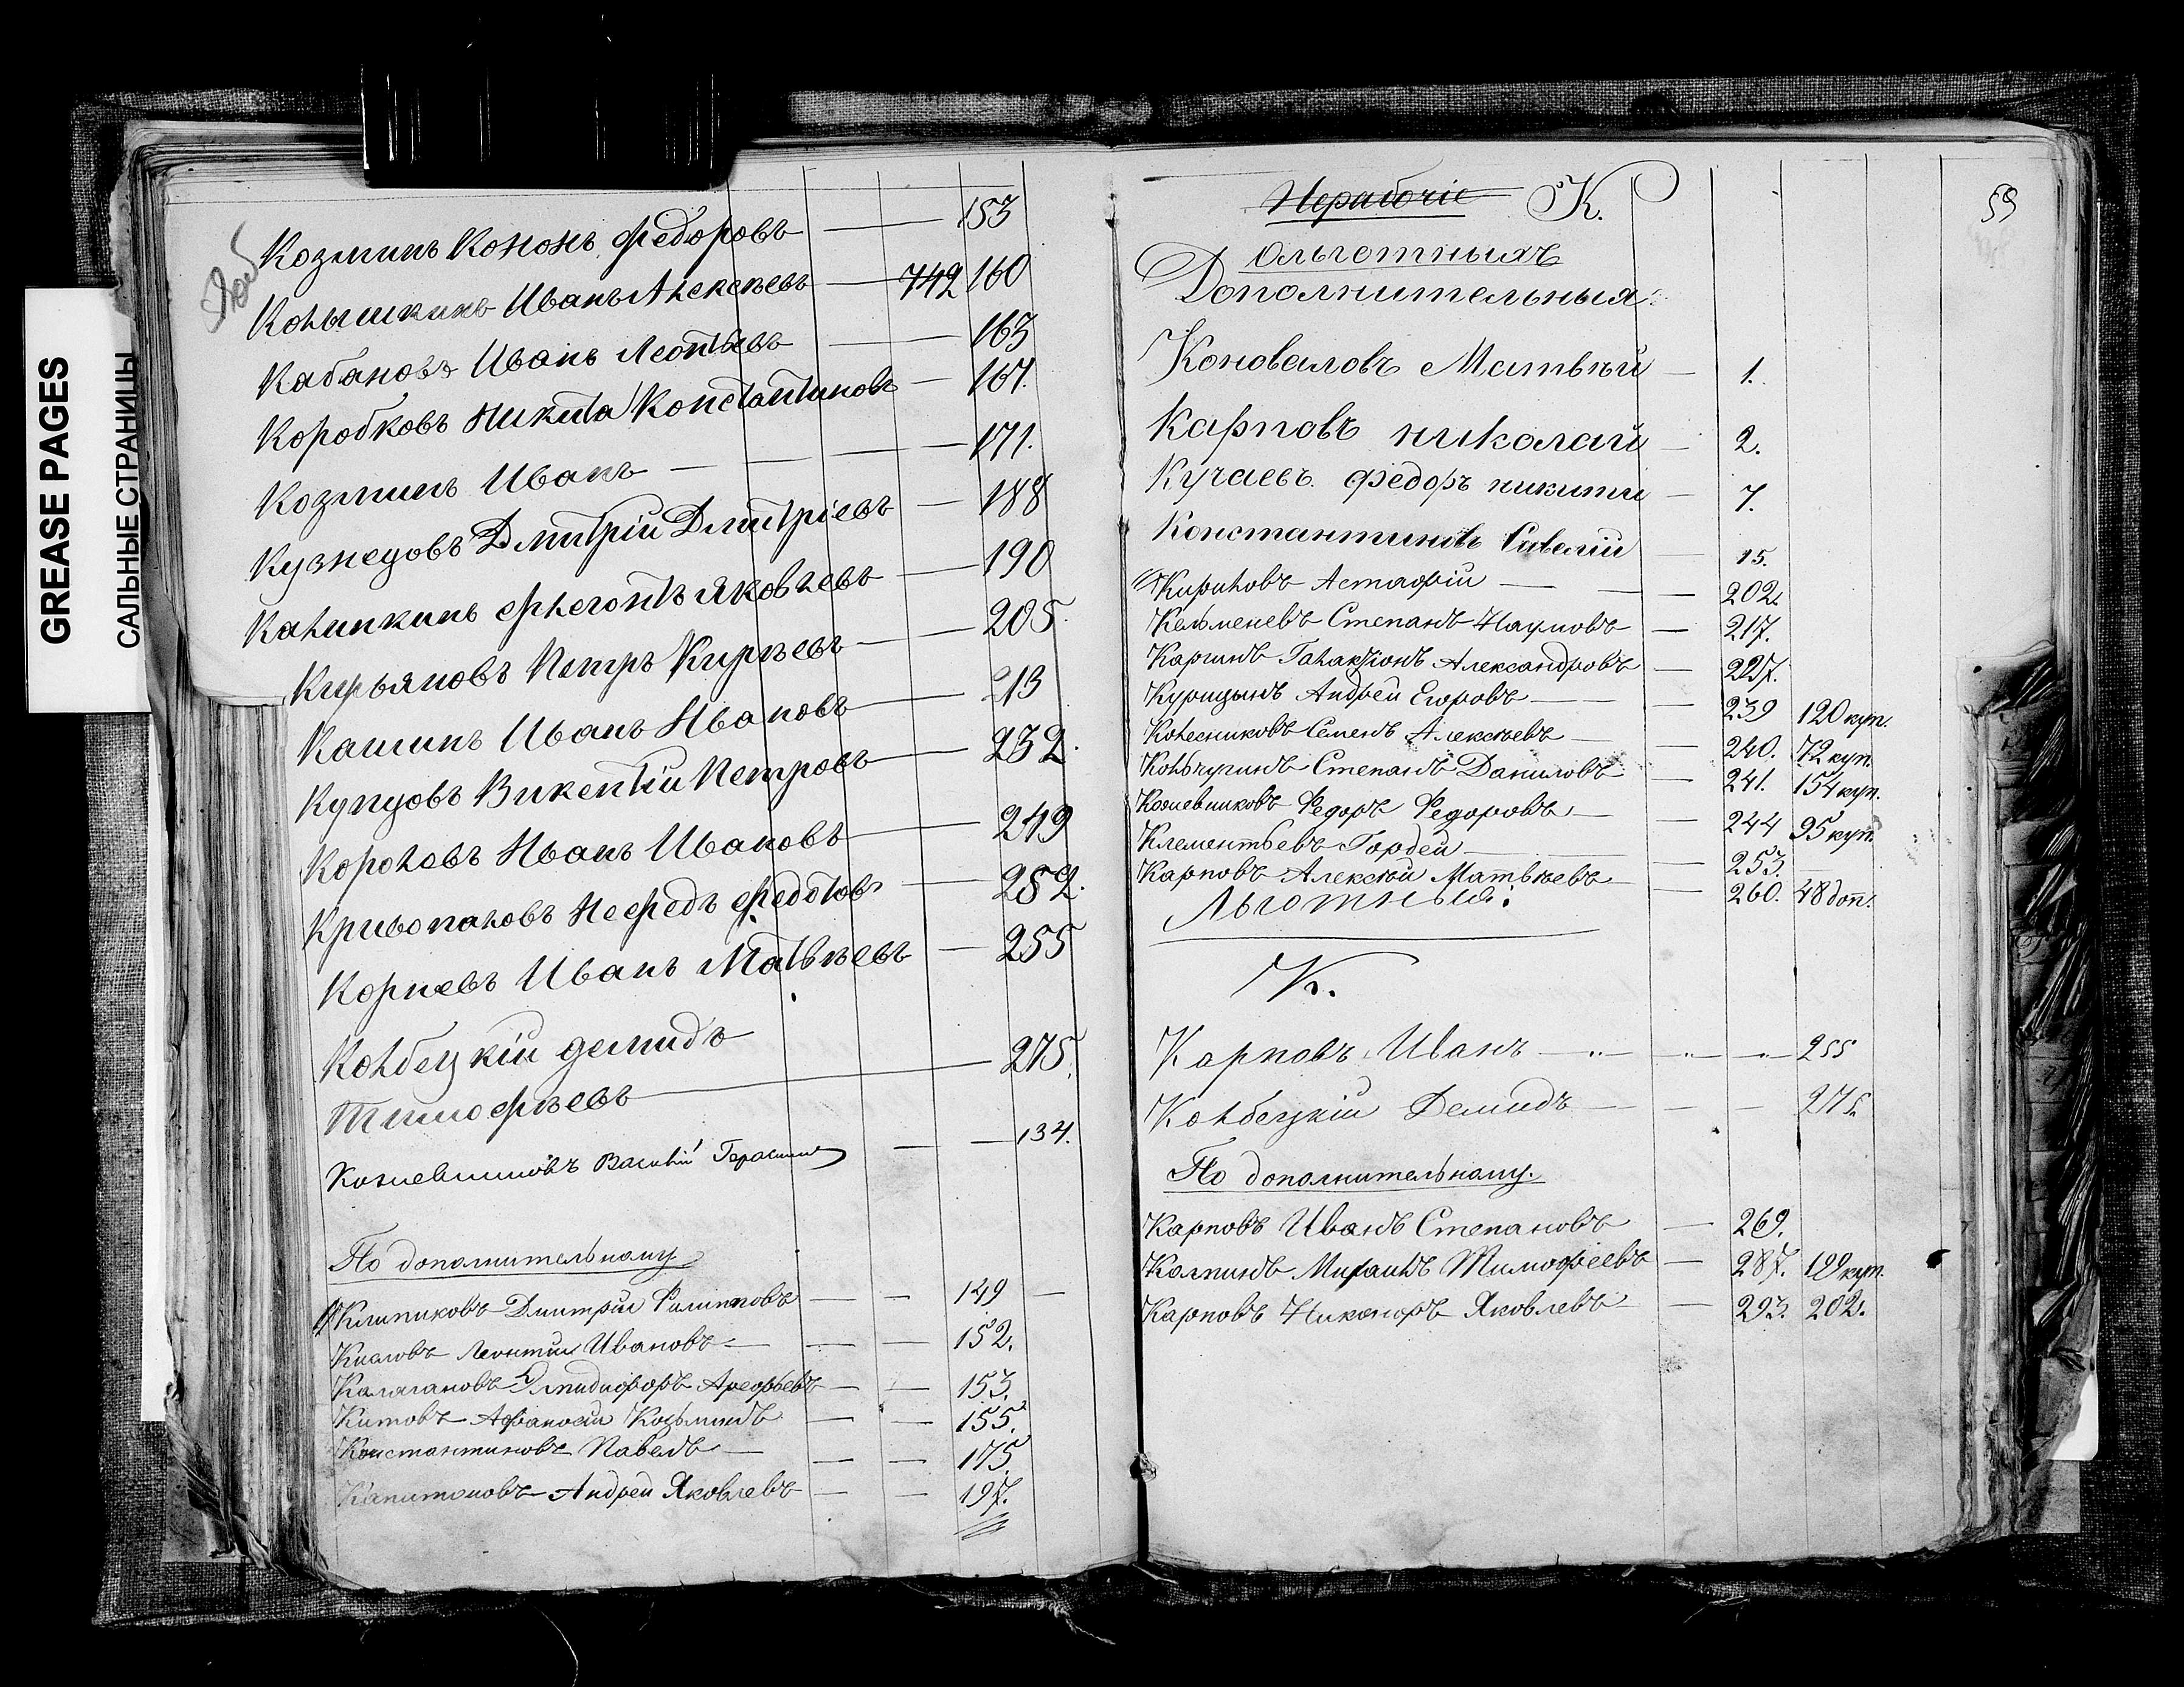 GREASE PAGES
САЛЬНЫЕ СТРАНИЦЫ
Козминъ Кононъ Федоровъ — 153
Колышкинъ Иванъ Алексѣевъ — 742 160
Кабановъ Иванъ Леонтьевъ — 163
Коробковъ Никита Константиновъ — 167.
Козминъ Иванъ — 171.
Кузнецовъ Дмитрій Дмитріевъ — 188
Калинкинъ Флегонтъ Яковлевъ — 190
Кирьяновъ Петръ Кирѣевъ — 205.
Кашинъ Иванъ Ивановъ — 213
Купцовъ Викентій Петровъ — 232.
Корольовъ Иванъ Ивановъ — 249
Кривопаловъ Нефедъ Федотовъ — 252.
Корневъ Иванъ Матвѣевъ — 255
Колбецкій Демидъ
Тимофѣевъ — 275.
Кожевниковъ Василій Герасим — 134.
По дополнительному
Климиковъ Дмитрій Филипповъ — 149 —
Кисловъ Леонтій Ивановъ — 152.
Калагановъ Элпидифоръ Арефьевъ — 153.
Китовъ Афанасій Козьминъ — 155.
Константиновъ Павелъ — 175.
Капитоновъ Андрей Яковлевъ — 197.
59
Нерабочіе К.
Ольготныхъ
Дополнительныя
Коноваловъ Матвѣй — 1.
Карповъ Николай — 2.
Кучаевъ Федоръ Никити — 7.
Константиновъ Савелій — 15.
Кириловъ Астафій — 202.
Кельменевъ Степанъ Наумовъ — 217.
Каргинъ Галактіонъ Александровъ — 227.
Курицынъ Андрей Егоровъ — 239 120 куп.
Колесниковъ Семенъ Алексѣевъ — 240. 72 куп.
Кольчугинъ Степанъ Даниловъ — 241. 154 куп.
Кожевниковъ Федоръ Федоровъ — 244 95 куп.
Клементьевъ Гордей — 253.
Карповъ Алексѣй Матвѣевъ — 260. 48 доп.
Льготныя:
К.
Карповъ Иванъ — „ — „ — „ — 255
Колбецкій Демидъ — 275.
По дополнительному.
Карповъ Иванъ Степановъ — 269.
Колпинъ Михаилъ Тимофеевъ — 287. 199 куп.
Карповъ Никаноръ Яковлевъ — 293. 202.